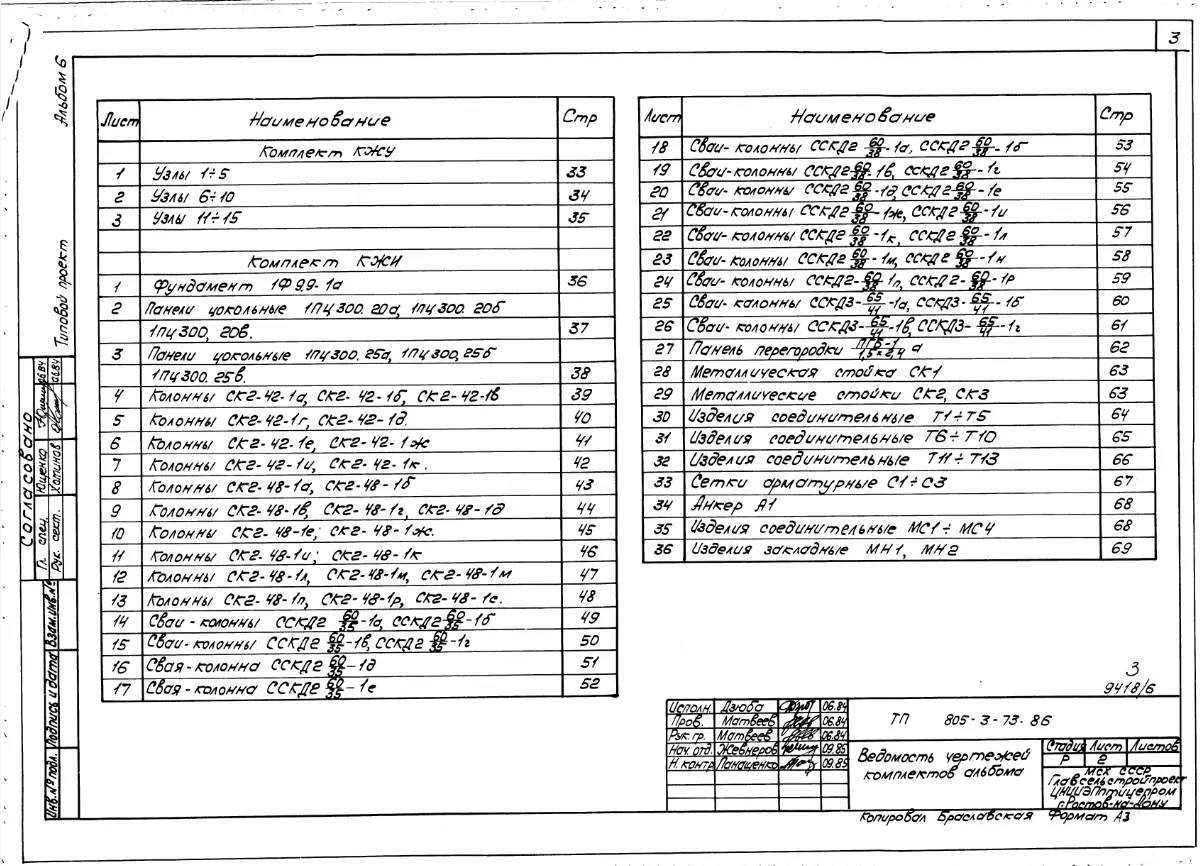 3
Альбом 6
Типовой проект
Лист Наименование Стр
Комплект КЖУ
1 Узлы 1÷5 33
2 Узлы 6÷10 34
3 Узлы 11÷15 35
Комплект КЖИ
1 Фундамент 1Ф 9.9-1а 36
2 Панели цокольные 1ПЦ 300.20а, 1ПЦ 300.20б
1ПЦ 300, 20в. 37
3 Панели цокольные 1ПЦ 300.25а, 1ПЦ 300,25б
1ПЦ 300.25в. 38
4 Колонны СК2-42-1а, СК2-42-1б, СК2-42-1в 39
5 Колонны СК2-42-1г, СК2-42-1д. 40
6 Колонны СК2-42-1е, СК2-42-1ж 41
7 Колонны СК2-42-1и, СК2-42-1к. 42
8 Колонны СК2-48-1а, СК2-48-1б 43
9 Колонны СК2-48-1в, СК2-48-1г, СК2-48-1д 44
10 Колонны СК2-48-1е; СК2-48-1ж. 45
11 Колонны СК2-48-1и; СК2-48-1к 46
12 Колонны СК2-48-1л, СК2-48-1м, СК2-48-1м 47
13 Колонны СК2-48-1п, СК2-48-1р, СК2-48-1с. 48
14 Сваи-колонны ССКД2 60/35-1а, ССКД2 60/35-1б 49
15 Сваи-колонны ССКД2 60/35-1в, ССКД2 60/35-1г 50
16 Свая-колонна ССКД2 60/35-1д 51
17 Свая-колонна ССКД2 60/35-1е 52
Лист Наименование Стр
18 Сваи-колонны ССКД2 60/38-1а, ССКД2 60/38-1б 53
19 Сваи-колонны ССКД2-60/38-1в, ССКД2 60/38-1г 54
20 Сваи-колонны ССКД2 60/38-1д, ССКД2 60/38-1е 55
21 Сваи-колонны ССКД2 60/38-1ж, ССКД2 60/38-1и 56
22 Сваи-колонны ССКД2 60/38-1к, ССКД2 60/38-1л 57
23 Сваи-колонны ССКД2 60/38-1м, ССКД2 60/38-1н 58
24 Сваи-колонны ССКД2-60/38-1п, ССКД2-60/38-1р 59
25 Сваи-калонны ССКД3-65/41-1а, ССКД3-65/41-1б 60
26 Сваи-колонны ССКД3-65/41-1в, ССКД3-65/41-1г 61
27 Панель перегородки ПГБ-1/1,5х2,4 а 62
28 Металлическая стойка СК1 63
29 Металлические стойки СК2, СК3 63
30 Изделия соединительные Т1÷Т5 64
31 Изделия соединительные Т6÷Т10 65
32 Изделия соединительные Т11÷Т13 66
33 Сетки арматурные С1÷С3 67
34 Анкер А1 68
35 Изделия соединительные МС1÷МС4 68
36 Изделия закладные МН1, МН2 69
Согласовано
Гл. спец. Ющенко 06.84
Рук. сект. Хатинов 06.84
Взам.инв.№
Подпись и дата
Инв.№ подл.
3
9418/6
Исполн. Дзюба 06.84
Пров. Матвеев 06.84
Рук.гр. Матвеев 06.84
Нач. отд. Жевнеров 09.85
Н.контр Панащенко 09.85
ТП 805-3-73.86
Ведомость чертежей
комплектов альбома
Стадия Лист Листов
Р 2
МСХ СССР
Главсельстройпроект
ЦНИИЭПптицепром
г.Ростов-на-Дону
Копировал Браславская Формат А3